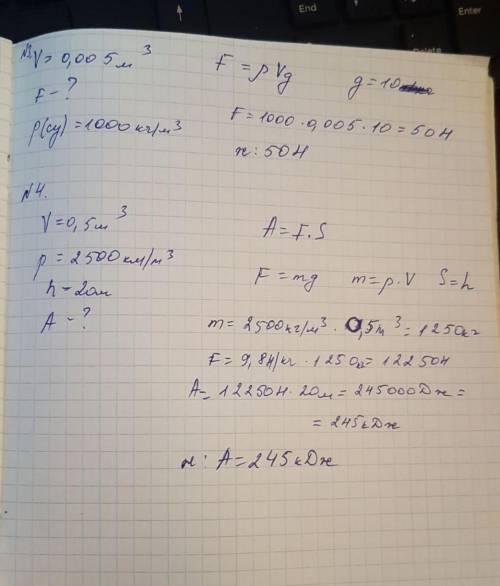 End
Enter
Delete
№3 V = 0,005 м³
F - ?
ρ(су) = 1000 кг/м³
F = ρVg
g = 10
F = 1000 · 0,005 · 10 = 50Н
н: 50Н
№4.
V = 0,5 м³
ρ = 2500 км/м³
h = 20м
A - ?
A = F · S
F = mg m = ρ · V S = h
m = 2500 кг/м³ · 0,5 м³ = 1250 кг
F = 9,8 Н/кг · 1250 = 12250Н
A = 12250Н · 20м = 245000 Дж =
= 245 кДж
н: A = 245 кДж